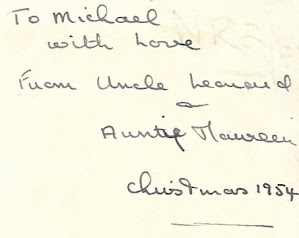 To Michael
with Love
From Uncle Leonard
&
Auntie Maureen
Christmas 1954